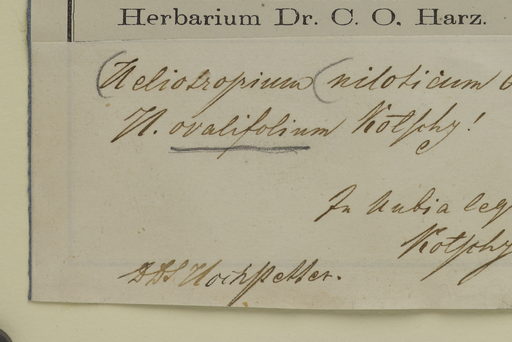 Herbarium Dr. C. O. Harz.
(Heliotropium (niloticum
H. ovalifolium Kotschy!
In Nubia leg
Kotschy
Hochstetter.